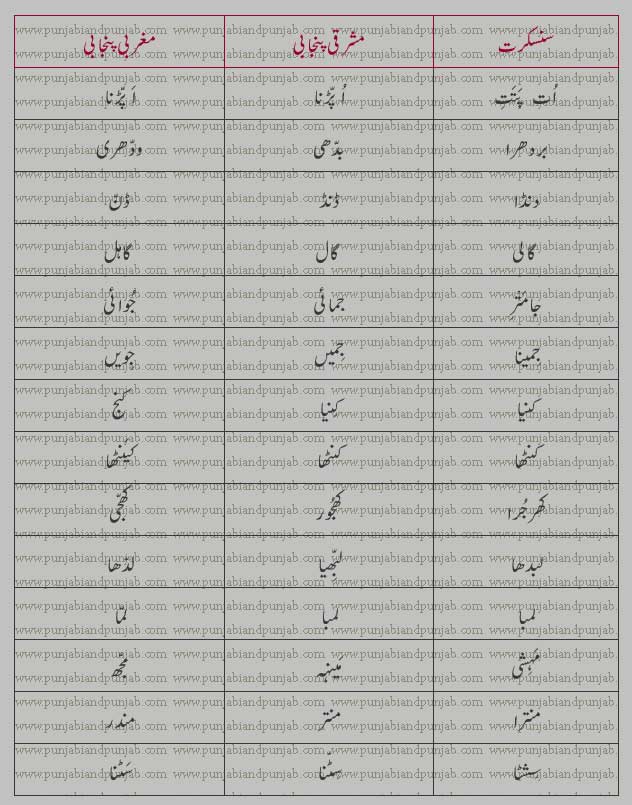 سنسکرت مشرقی پنجابی مغربی پنجابی
اُت پَتَتِ اُپّڑنا اَپّڑنا
بردھرا بدّھی ودّھری
دنڈا ڈنڈ ڈنّ
گالی گال گاہل
جامَتر جمائی جُوائی
جمینا جمیں جویں
کنیا کنیا کنج
کنٹھا کنٹھا کینٹھا
کھرجُرا کھجُور کھجّی
لبدھا لبّھیا لدّھا
لمبا لمبا لمّا
مَہِشی مَینہہ مجّھ
منترا منتر مندر
سٹنا سَٹنا
www.punjabiandpunjab.com